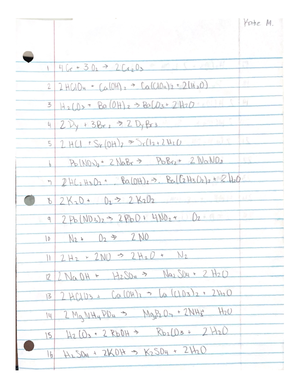 Yorke M.
1 4Cr + 3O₂ → 2Cr₂O₃
2 2HClO₄ + Ca(OH)₂ → Ca(ClO₄)₂ + 2(H₂O)
3 H₂CO₃ + Ba(OH)₂ → BaCO₃ + 2H₂O
4 2Dy + 3Br₂ → 2DyBr₃
5 2HCl + Sr(OH)₂ → SrCl₂ + 2H₂O
6 Pb(NO₃)₂ + 2NaBr → PbBr₂ + 2NaNO₃
7 2HC₂H₃O₂ + Ba(OH)₂ → Ba(C₂H₃O₂)₂ + 2H₂O
8 2K₂O + O₂ → 2K₂O₂
9 2Pb(NO₃)₂ → 2PbO + 4NO₂ + O₂
10 N₂ + O₂ → 2NO
11 2H₂ + 2NO → 2H₂O + N₂
12 2NaOH + H₂SO₄ → Na₂SO₄ + 2H₂O
13 2HClO₃ + Ca(OH)₂ → Ca(ClO₃)₂ + 2H₂O
14 2MgNH₄PO₄ → Mg₂P₂O₇ + 2NH₃ H₂O
15 H₂CO₃ + 2RbOH → Rb₂CO₃ + 2H₂O
16 H₂SO₄ + 2KOH → K₂SO₄ + 2H₂O